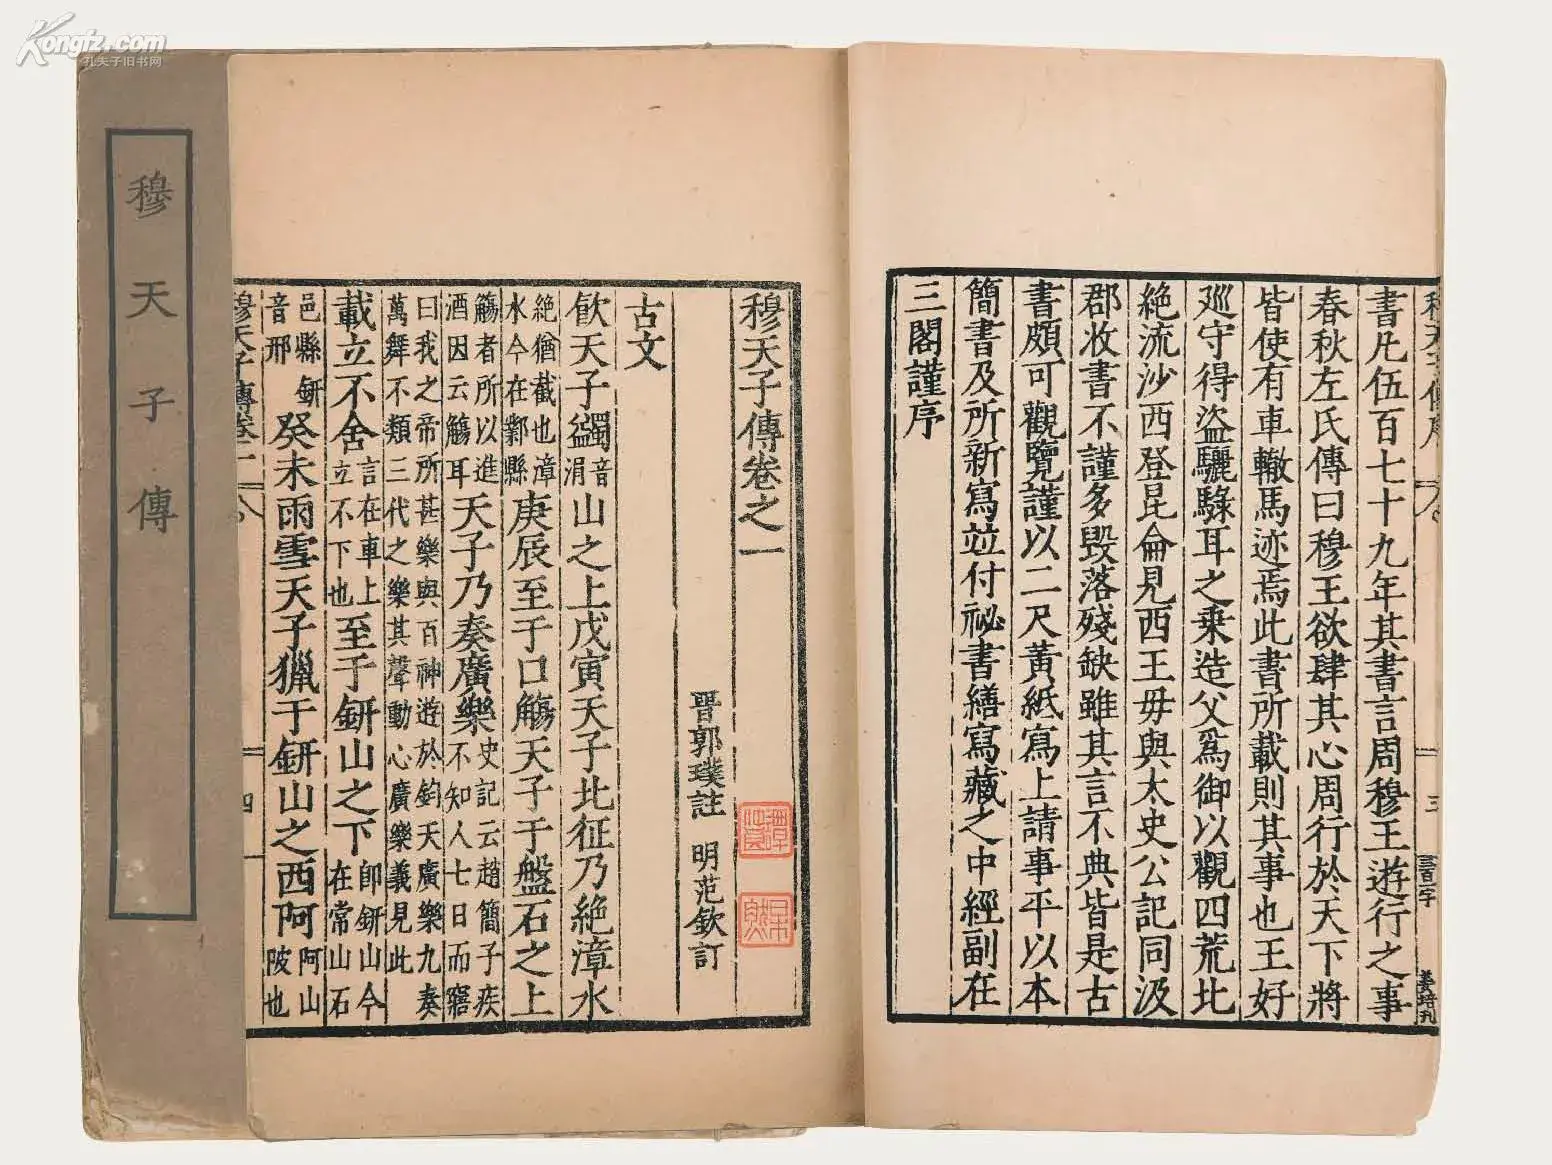 Kongfz.com
孔夫子旧书网
穆天子傳
書凡伍百七十九年其書言周穆王遊行之事
春秋左氏傳曰穆王欲肆其心周行於天下將
皆使有車轍馬迹焉此書所載則其事也王好
廵守得盗驪騄耳之乗造父為御以觀四荒北
絶流沙西登昆侖見西王毋與太史公記同汲
郡收書不謹多毁落殘缺雖其言不典皆是古
書頗可觀覽謹以二尺黄紙寫上請事平以本
簡書及所新寫並付祕書繕寫藏之中經副在
三閣謹序
穆天子傳卷之一
晋郭璞註 明范欽訂
古文
飲天子蠲音涓山之上戊寅天子北征乃絶漳水
絶猶截也漳水今在鄴縣庚辰至于口觴天子于盤石之上
觴者所以進酒因云觴耳天子乃奏廣樂史記云趙簡子疾不知人七日而寤
曰我之帝所甚樂與百神遊於鈞天廣樂九奏萬舞不類三代之樂其聲動心廣樂義見此
載立不舍言在車上立不下也至于鈃山之下即鈃山今在常山石
邑縣鈃音邢癸未雨雪天子獵于鈃山之西阿阿山陂也
穆天子傳卷一
四